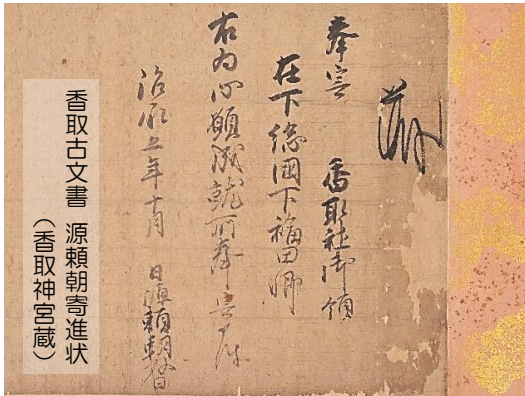 奉寄 香取社御領
在下総国下福田郷
右為心願成就所奉寄如件
治承五年十月 日源頼朝敬白
香取古文書 源頼朝寄進状
(香取神宮蔵)